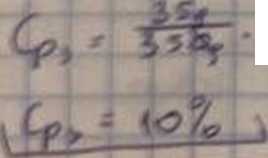 Cp₃ = 35g / 350g .
Cp₃ = 10%